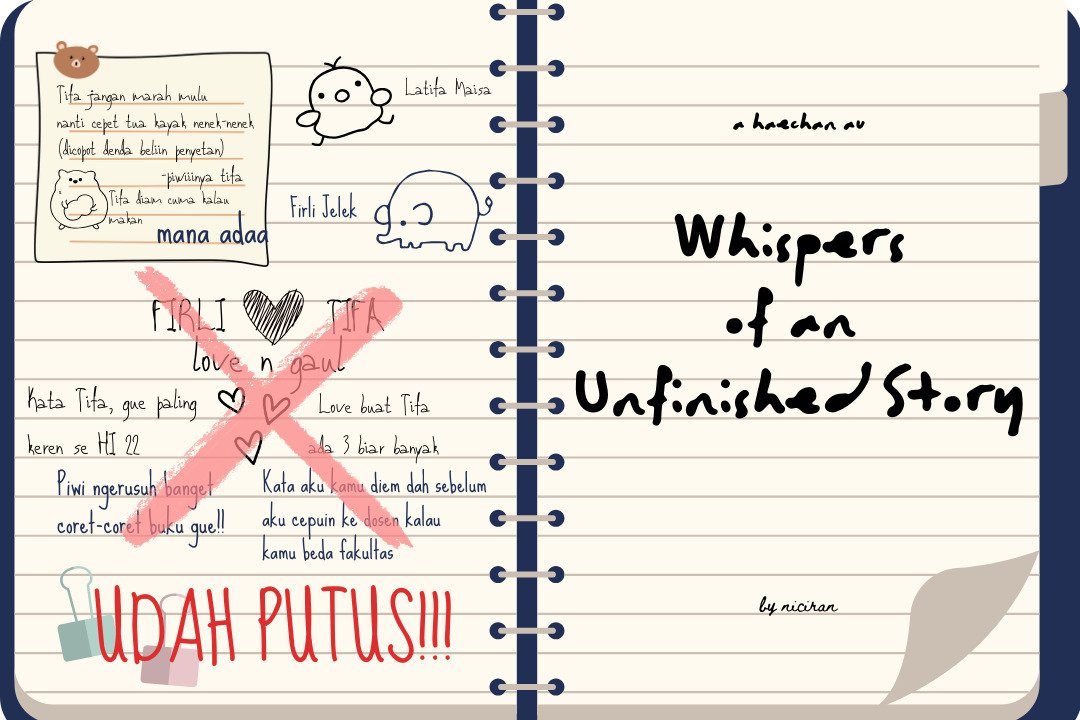 Tifa jangan marah mulu
nanti cepet tua kayak nenek-nenek
(dicopot denda beliin penyetan)
-piwiiinya tifa
Tifa diam cuma kalau
makan
mana adaa
Latifa Maisa
Firli Jelek
FIRLI TIFA
love n gaul
Kata Tifa, gue paling
keren se HI 22
Love buat Tifa
ada 3 biar banyak
Piwi ngerusuh banget
coret-coret buku gue!!
Kata aku kamu diem dah sebelum
aku cepuin ke dosen kalau
kamu beda fakultas
UDAH PUTUS!!!
a haechan au
Whispers
of an
Unfinished Story
by niciran